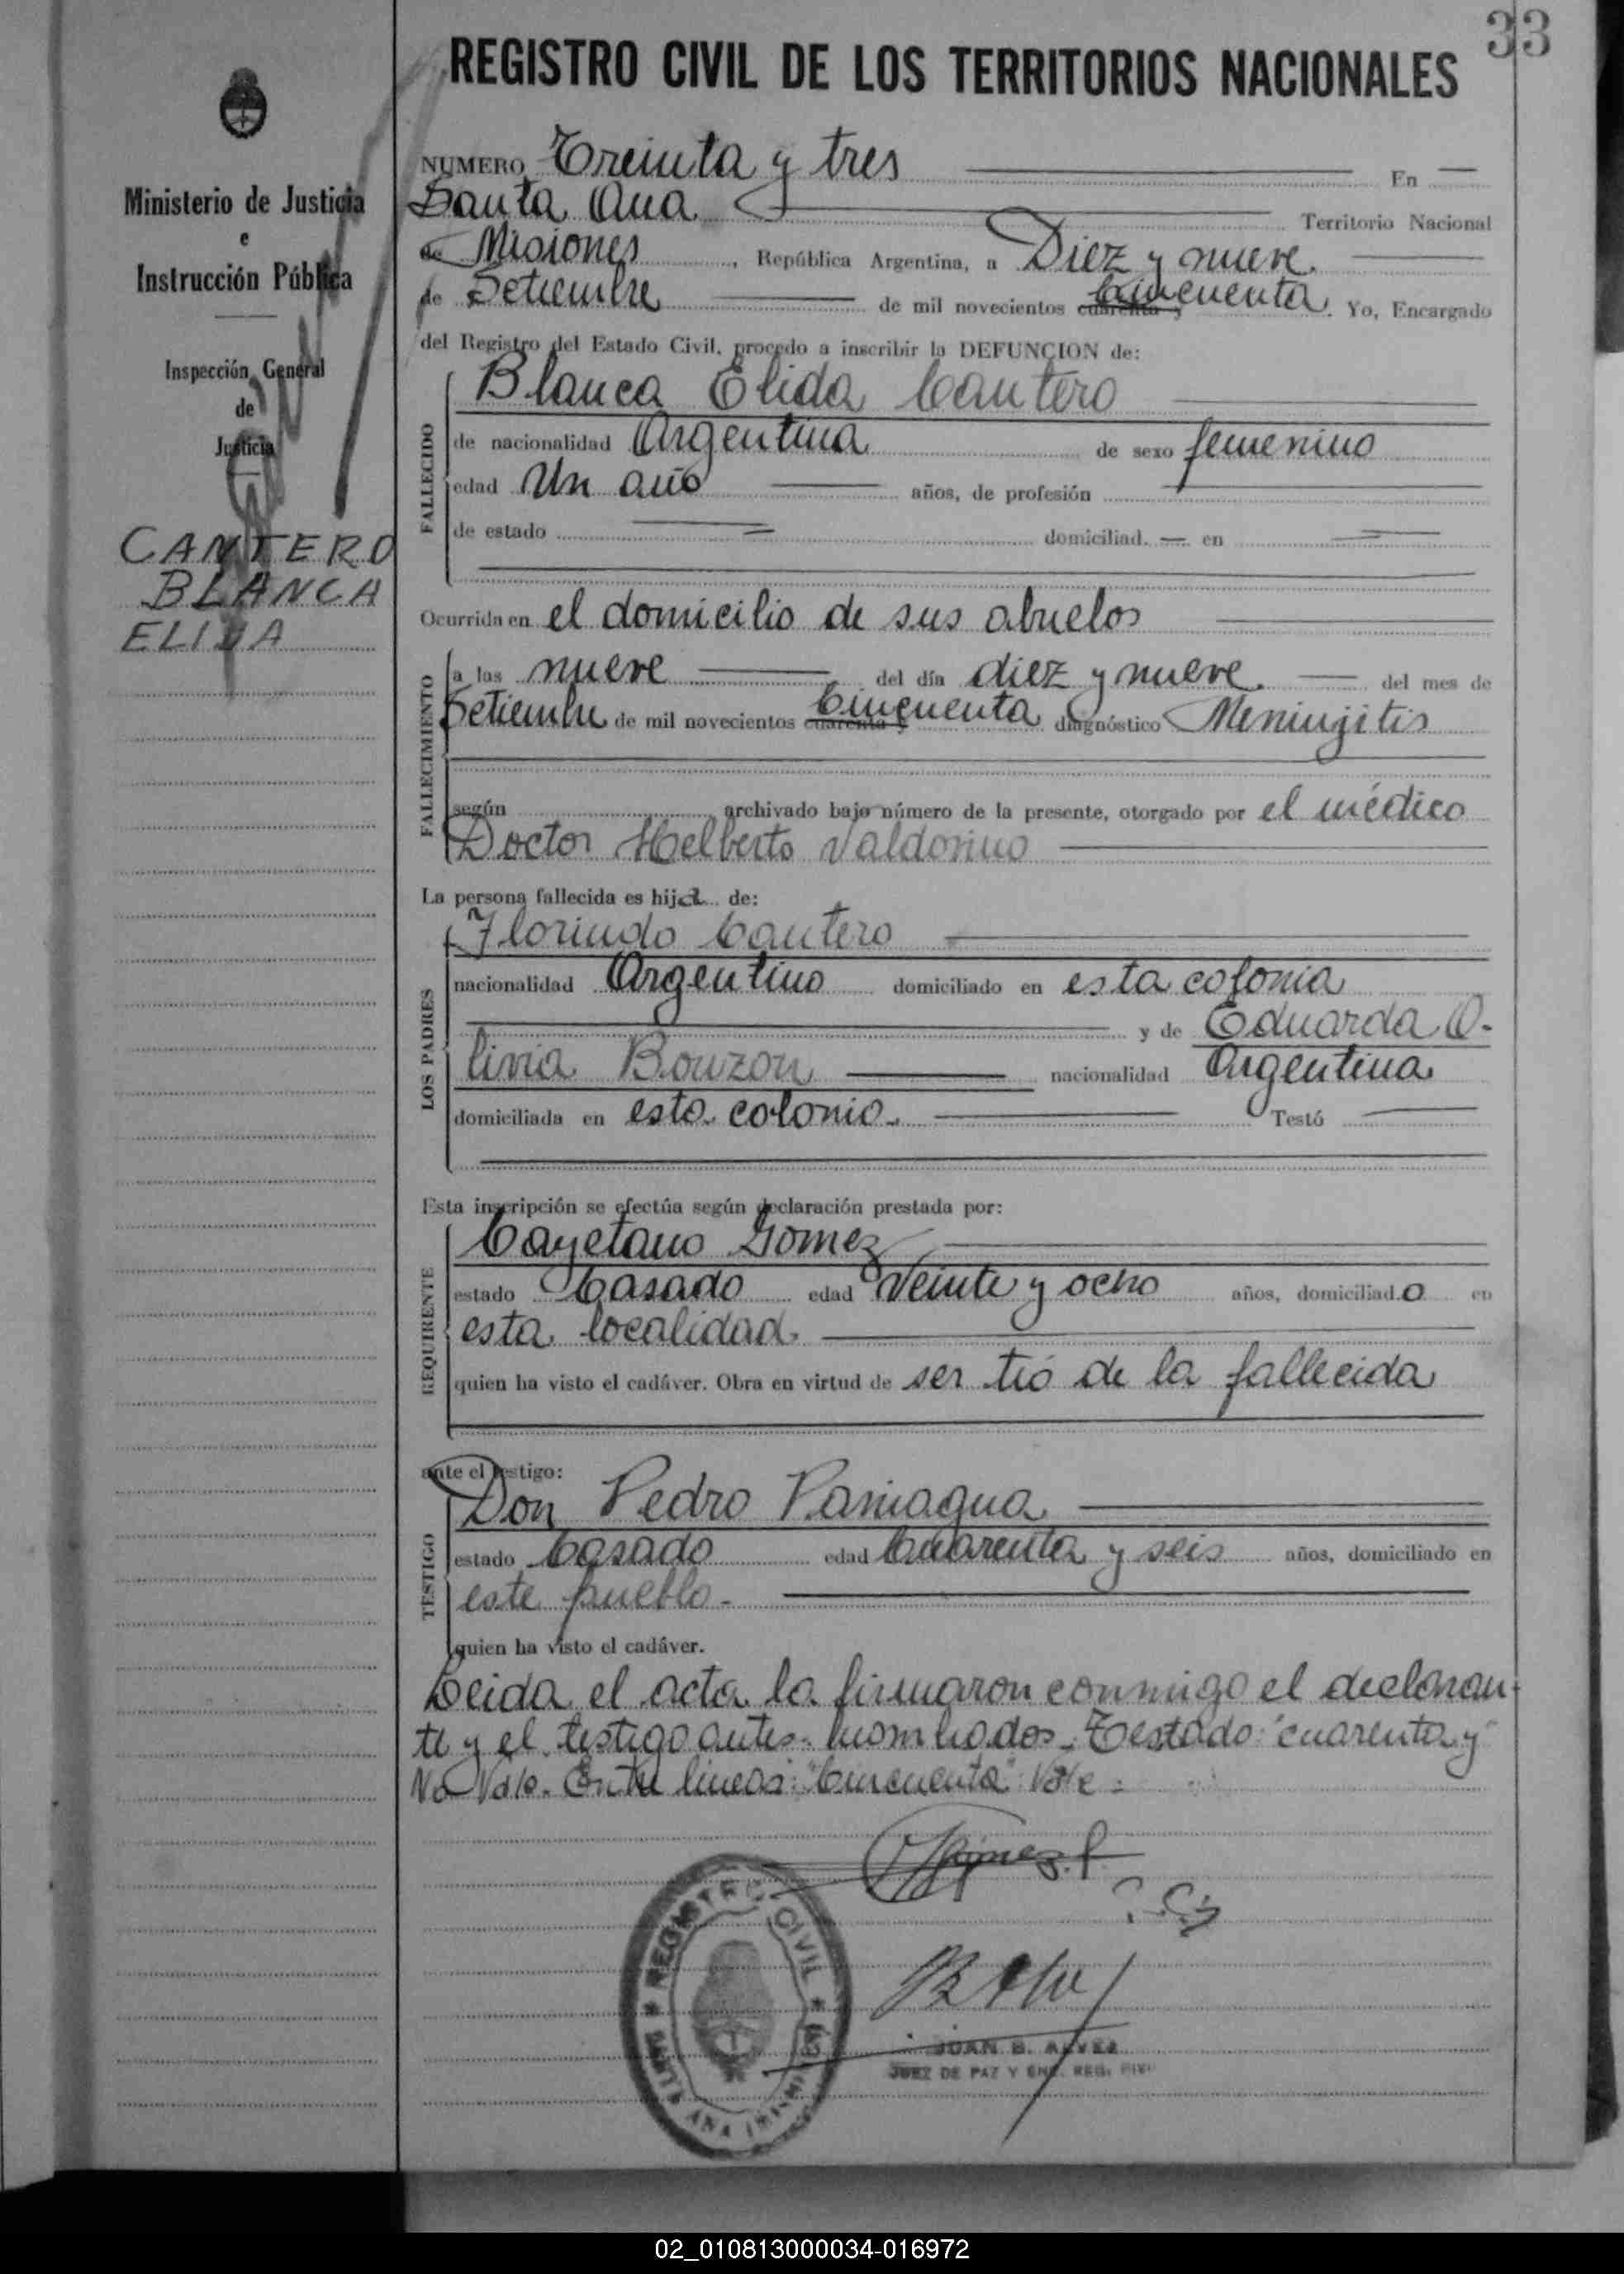 33
REGISTRO CIVIL DE LOS TERRITORIOS NACIONALES
Ministerio de Justicia
e
Instrucción Pública
Inspección General
de
Justicia
CANTERO
BLANCA
ELIDA
NUMERO Treinta y tres En
Santa Ana Territorio Nacional
de Misiones, República Argentina, a Diez y nueve
de Setiembre de mil novecientos cuarenta y Cincuenta. Yo, Encargado
del Registro del Estado Civil, procedo a inscribir la DEFUNCION de:
FALLECIDO
Blanca Elida Cantero
de nacionalidad Argentina de sexo femenino
edad Un año años, de profesión
de estado domiciliad. en
Ocurrida en el domicilio de sus abuelos
FALLECIMIENTO
a las nueve del día diez y nueve. del mes de
Setiembre de mil novecientos cuarenta y Cincuenta diagnóstico Meninjitis
según archivado bajo número de la presente, otorgado por el médico
Doctor Helberto Valdorino
La persona fallecida es hija de:
LOS PADRES
Florindo Cantero
nacionalidad Argentino domiciliado en esta colonia
y de Eduarda O-
livia Bouzon nacionalidad Argentina
domiciliada en esta colonia Testó
Esta inscripción se efectúa según declaración prestada por:
REQUIRENTE
Cayetano Gomez
estado Casado edad Veinte y ocho años, domiciliado en
esta localidad
quien ha visto el cadáver. Obra en virtud de ser tió de la fallecida
ante el testigo:
TESTIGO
Don Pedro Paniagua
estado Casado edad Cuarenta y seis años, domiciliado en
este pueblo.
quien ha visto el cadáver.
Leida el acta la firmaron conmigo el declaran-
te y el testigo antes nombrados. Testado: "cuarenta y"
No Vale. Entre lineas: "Cincuenta" Vale
REGISTRO CIVIL
SANTA ANA (MISIONES)
JUAN B. ALVEZ
JUEZ DE PAZ Y ENC. REG. CIVIL
02_010813000034-016972